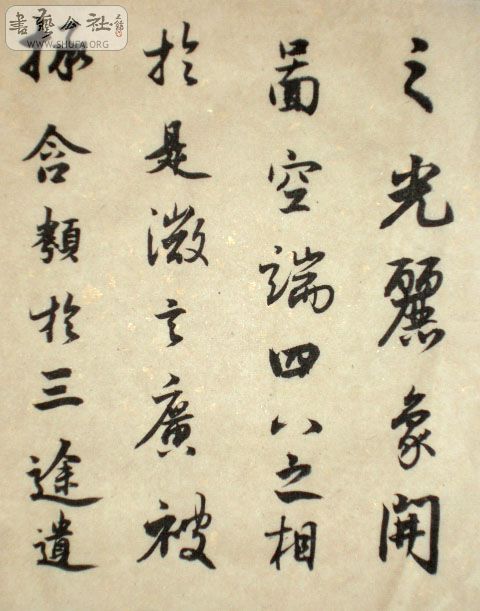 書藝公社
WWW.SHUFA.ORG
之光麗象開
啚空端四八之相
於是微言廣被
拯含類於三途遺